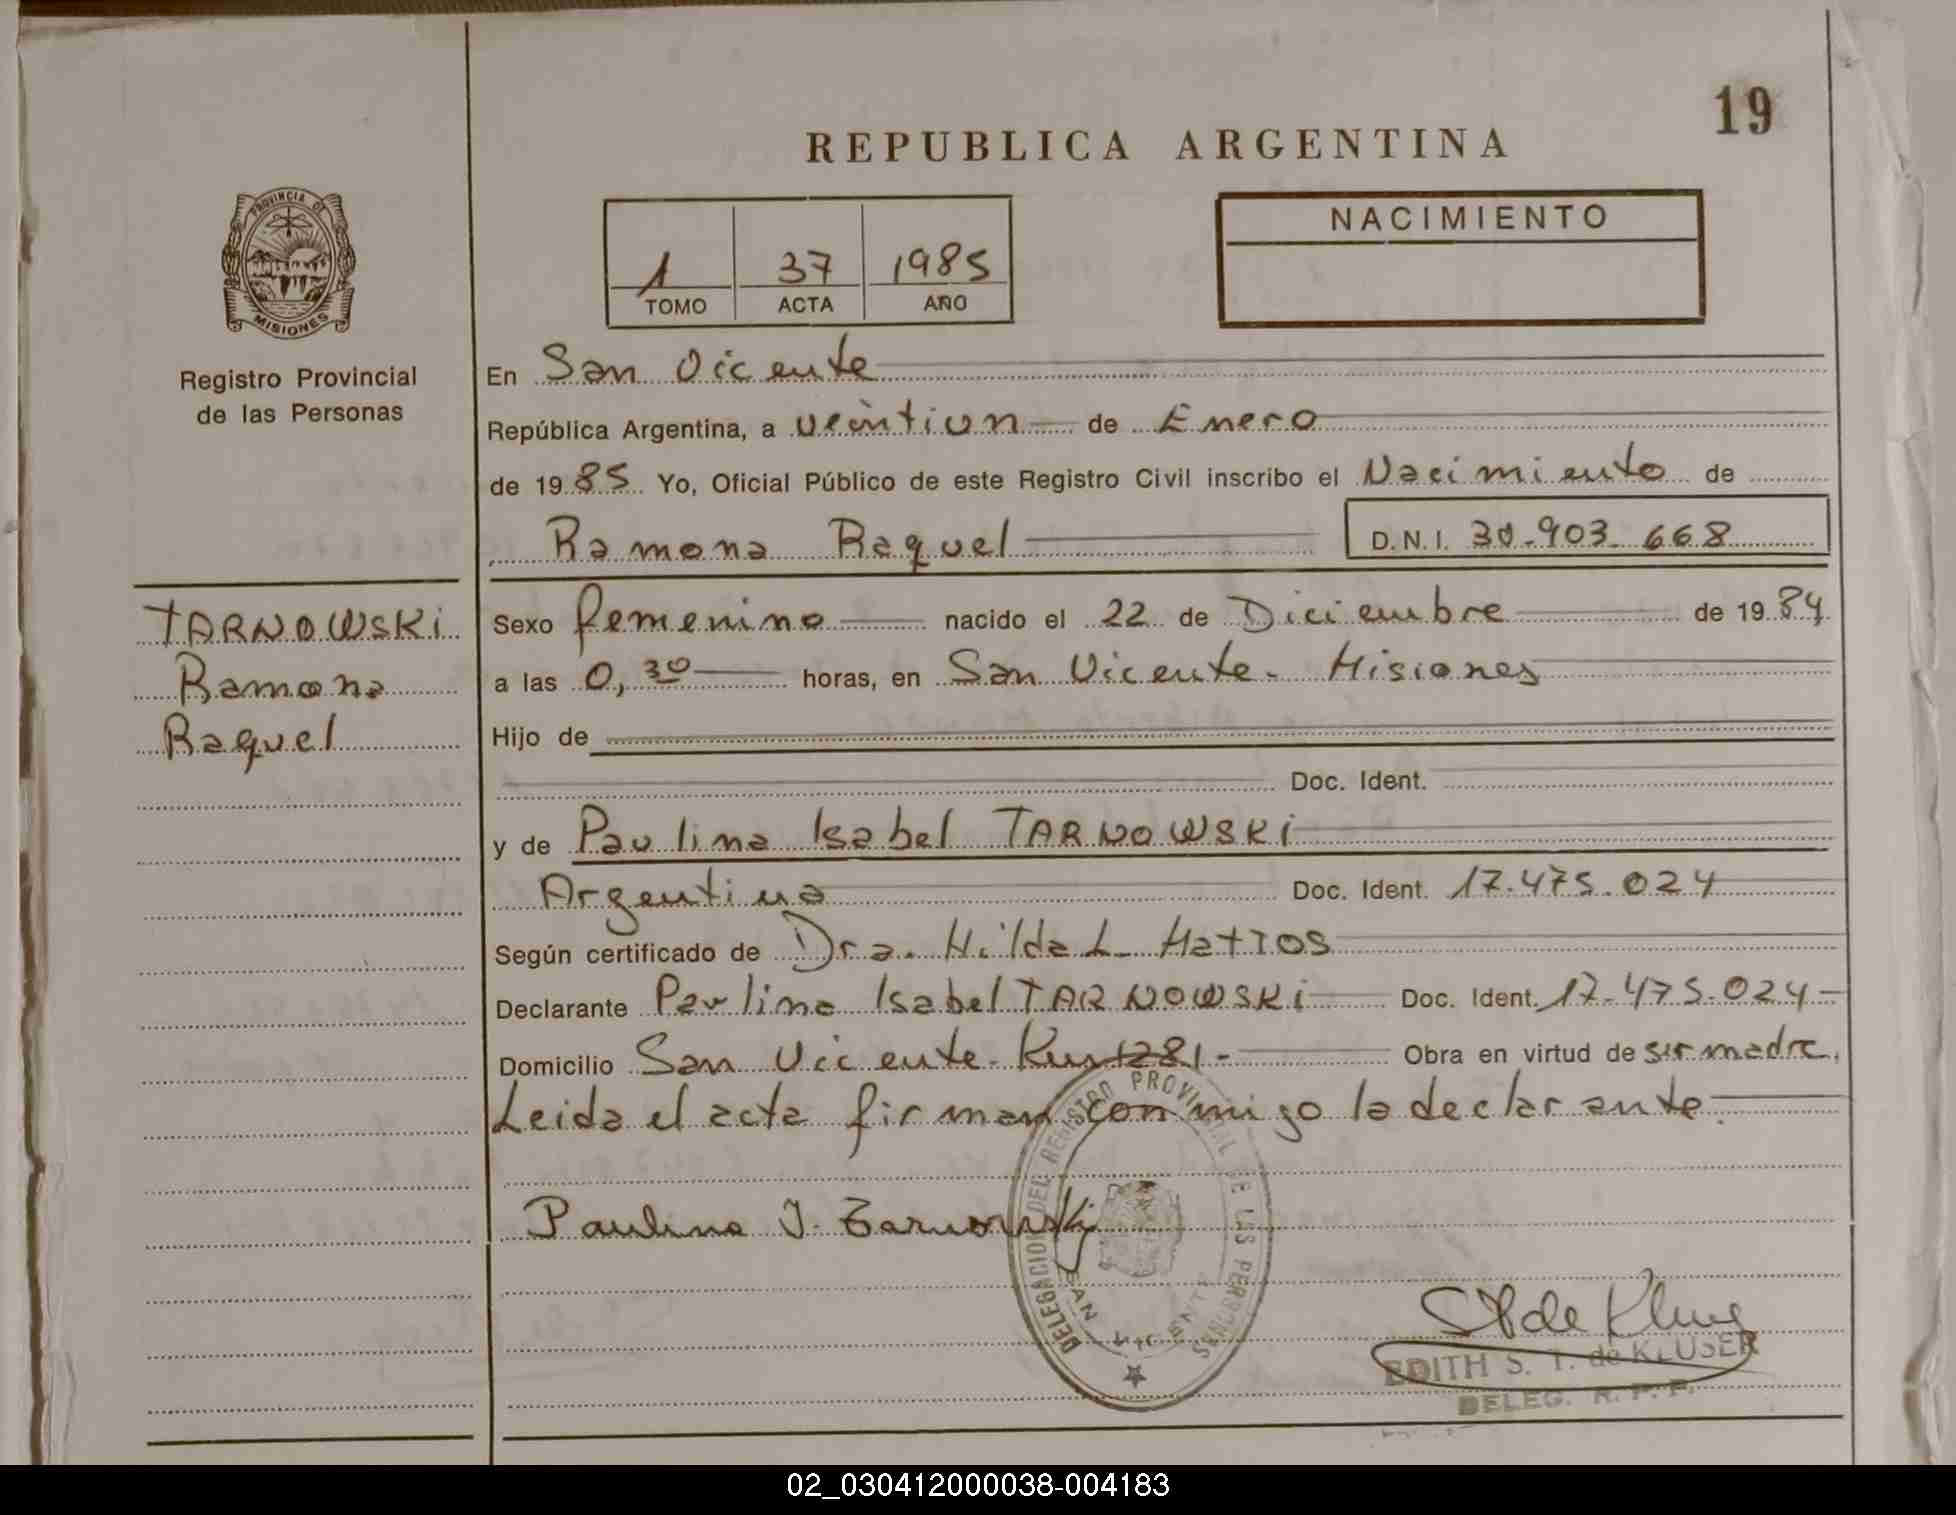 19
REPUBLICA ARGENTINA
PROVINCIA DE
MISIONES
Registro Provincial
de las Personas
1 37 1985
TOMO ACTA AÑO
NACIMIENTO
En San Vicente
República Argentina, a veintiun de Enero
de 1985 Yo, Oficial Público de este Registro Civil inscribo el Nacimiento de
Ramona Raquel D.N.I. 30.903.668
TARNOWSKI
Ramona
Raquel
Sexo femenino nacido el 22 de Diciembre de 1984
a las 0,30 horas, en San Vicente - Misiones
Hijo de
Doc. Ident.
y de Paulina Isabel TARNOWSKI
Argentina Doc. Ident. 17.475.024
Según certificado de Dra. Hilda L. Mattos
Declarante Paulina Isabel TARNOWSKI Doc. Ident. 17.475.024
Domicilio San Vicente - Km 1281 - Obra en virtud de ser madre.
Leida el acta firman conmigo la declarante.
Paulina I. Tarnowski
DELEGACION DEL REGISTRO PROVINCIAL DE LAS PERSONAS
SAN VICENTE
EDITH S. T. de KLUSER
DELEG. R. P. P.
02_030412000038-004183